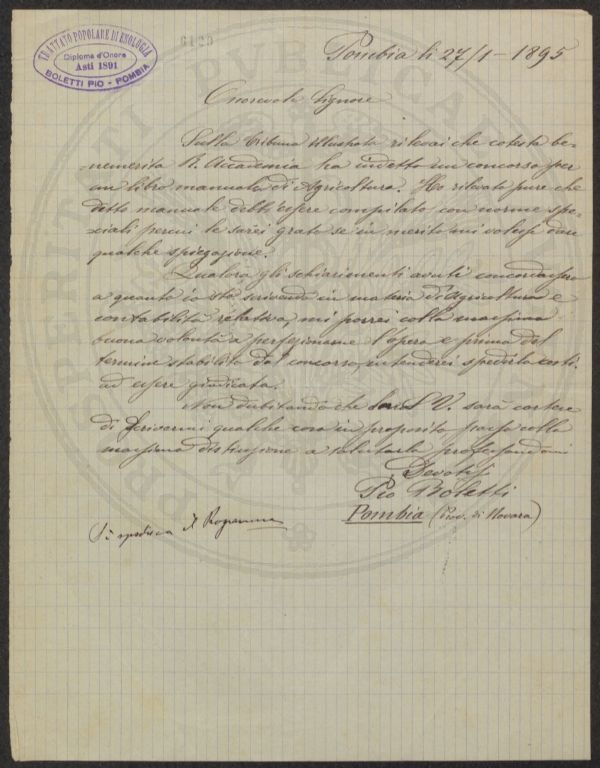 TRATTATO POPOLARE DI ENOLOGIA
Diploma d'Onore
Asti 1891
BOLETTI PIO - POMBIA
6120
Pombia li 27/1-1895
Onorevole Signore
Sulla Tribuna illustrata rilevai che cotesta be-
nemerita R. Accademia ha indetto un concorso per
un libro manuale di Agricoltura. Ho rilevato pure che
detto manuale debb'essere compilato con norme spe-
ciali perciò le sarei grato se in merito mi volesse dare
qualche spiegazione.
Qualora gli schiarimenti avuti concordassero
a quanto io sto scrivendo in materia d'Agricoltura e
contabilità relativa, mi porrei colla massima
buona volontà a perfezionare l'opera e prima del
termine stabilito dal concorso intenderei spedirla costì
ad essere giudicata.
Non dubitando che la S. V. sarà cortese
di scrivermi qualche cosa in proposito passo colla
massima distinzione a salutarla professandomi
Devotis
Pio Boletti
Pombia (Prov. di Novara)
Si spedisca il Programma